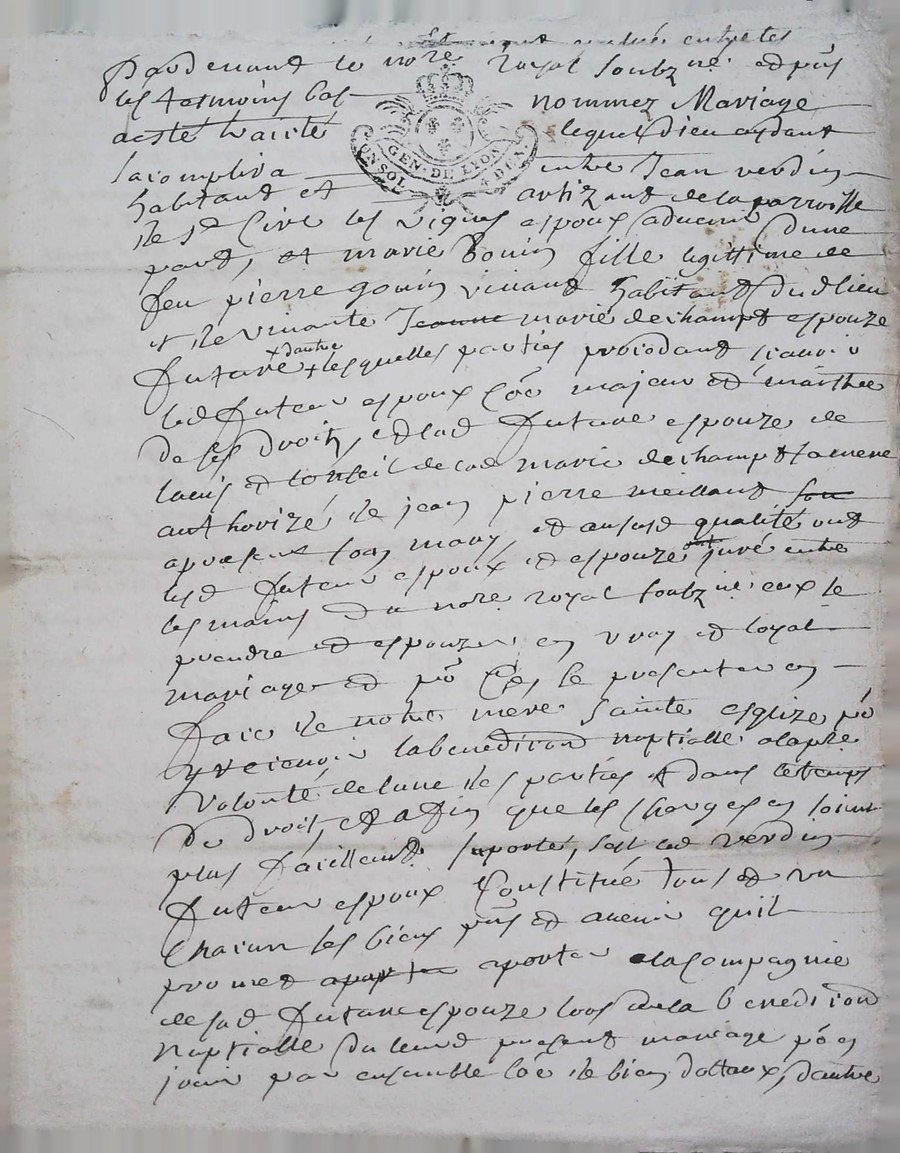 Pardevant le no^re royal soubz^né et p^ns
les tesmoins bas nommez Mariage
a esté traicté lequel dieu aydant
GEN. DE LYON
UN SOL 4 DEN.
sacomplira entre Jean verdier
habitant et artizant de la parroisse
de S^t Cire les vignes espoux advenir dune
part, et marie Gouin fille legittime de
feu pierre gouin vivant habitant dud lieu
et de vivante Jeanne marie dechampt espouze
future dautre lesquelles parties procedant scavoir
led futeur espoux co^e majeur et maistre
de ses droitz, et lad future espouze de
lavis et conseil de lad marie dechampt sa mere
authorizé de jean pierre meillant son
apresent son mary, et ausd qualité ont
lesd futeur espoux et espouze juré entre
les mains du no^re royal soubz^né eux se
prendre et espouzer en vray et loyal
mariage et po^r ce se presenter en
face de notre mere sainte eglize po^r
y recevoir la benediction nuptialle a la p^re
volonté de lune des parties et dans le temps
de droit, et affin que les charges en soient
plus facillement suportés, sest led verdier
futeur espoux constitué tous et un
chacun ses biens p^ns et avenir quil
promet aporter a la compagnie
de sad future espouze lors de la benediction
nuptialle du leurd present mariage po^r en
jouir par ensemble co^e de bien dottaux, dautre